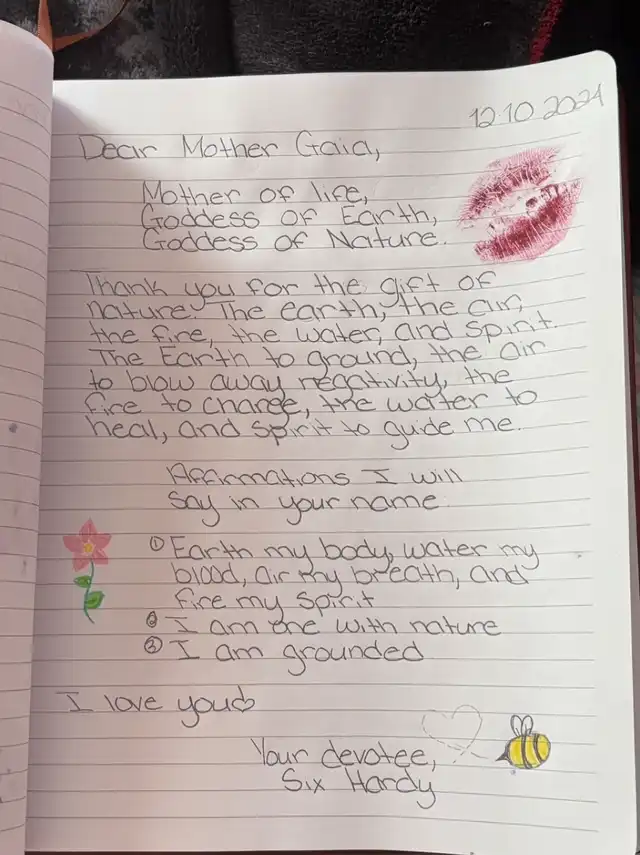 12.10.2024
Dear Mother Gaia,
Mother of life,
Goddess of Earth,
Goddess of Nature.
Thank you for the gift of
nature. The earth, the air,
the fire, the water, and spirit.
The Earth to ground, the air
to blow away negativity, the
fire to charge, the water to
heal, and spirit to guide me.
Affirmations I will
say in your name.
① Earth my body, water my
blood, air my breath, and
fire my spirit
② I am one with nature
③ I am grounded
I love you♡
Your devotee,
Six Hardy